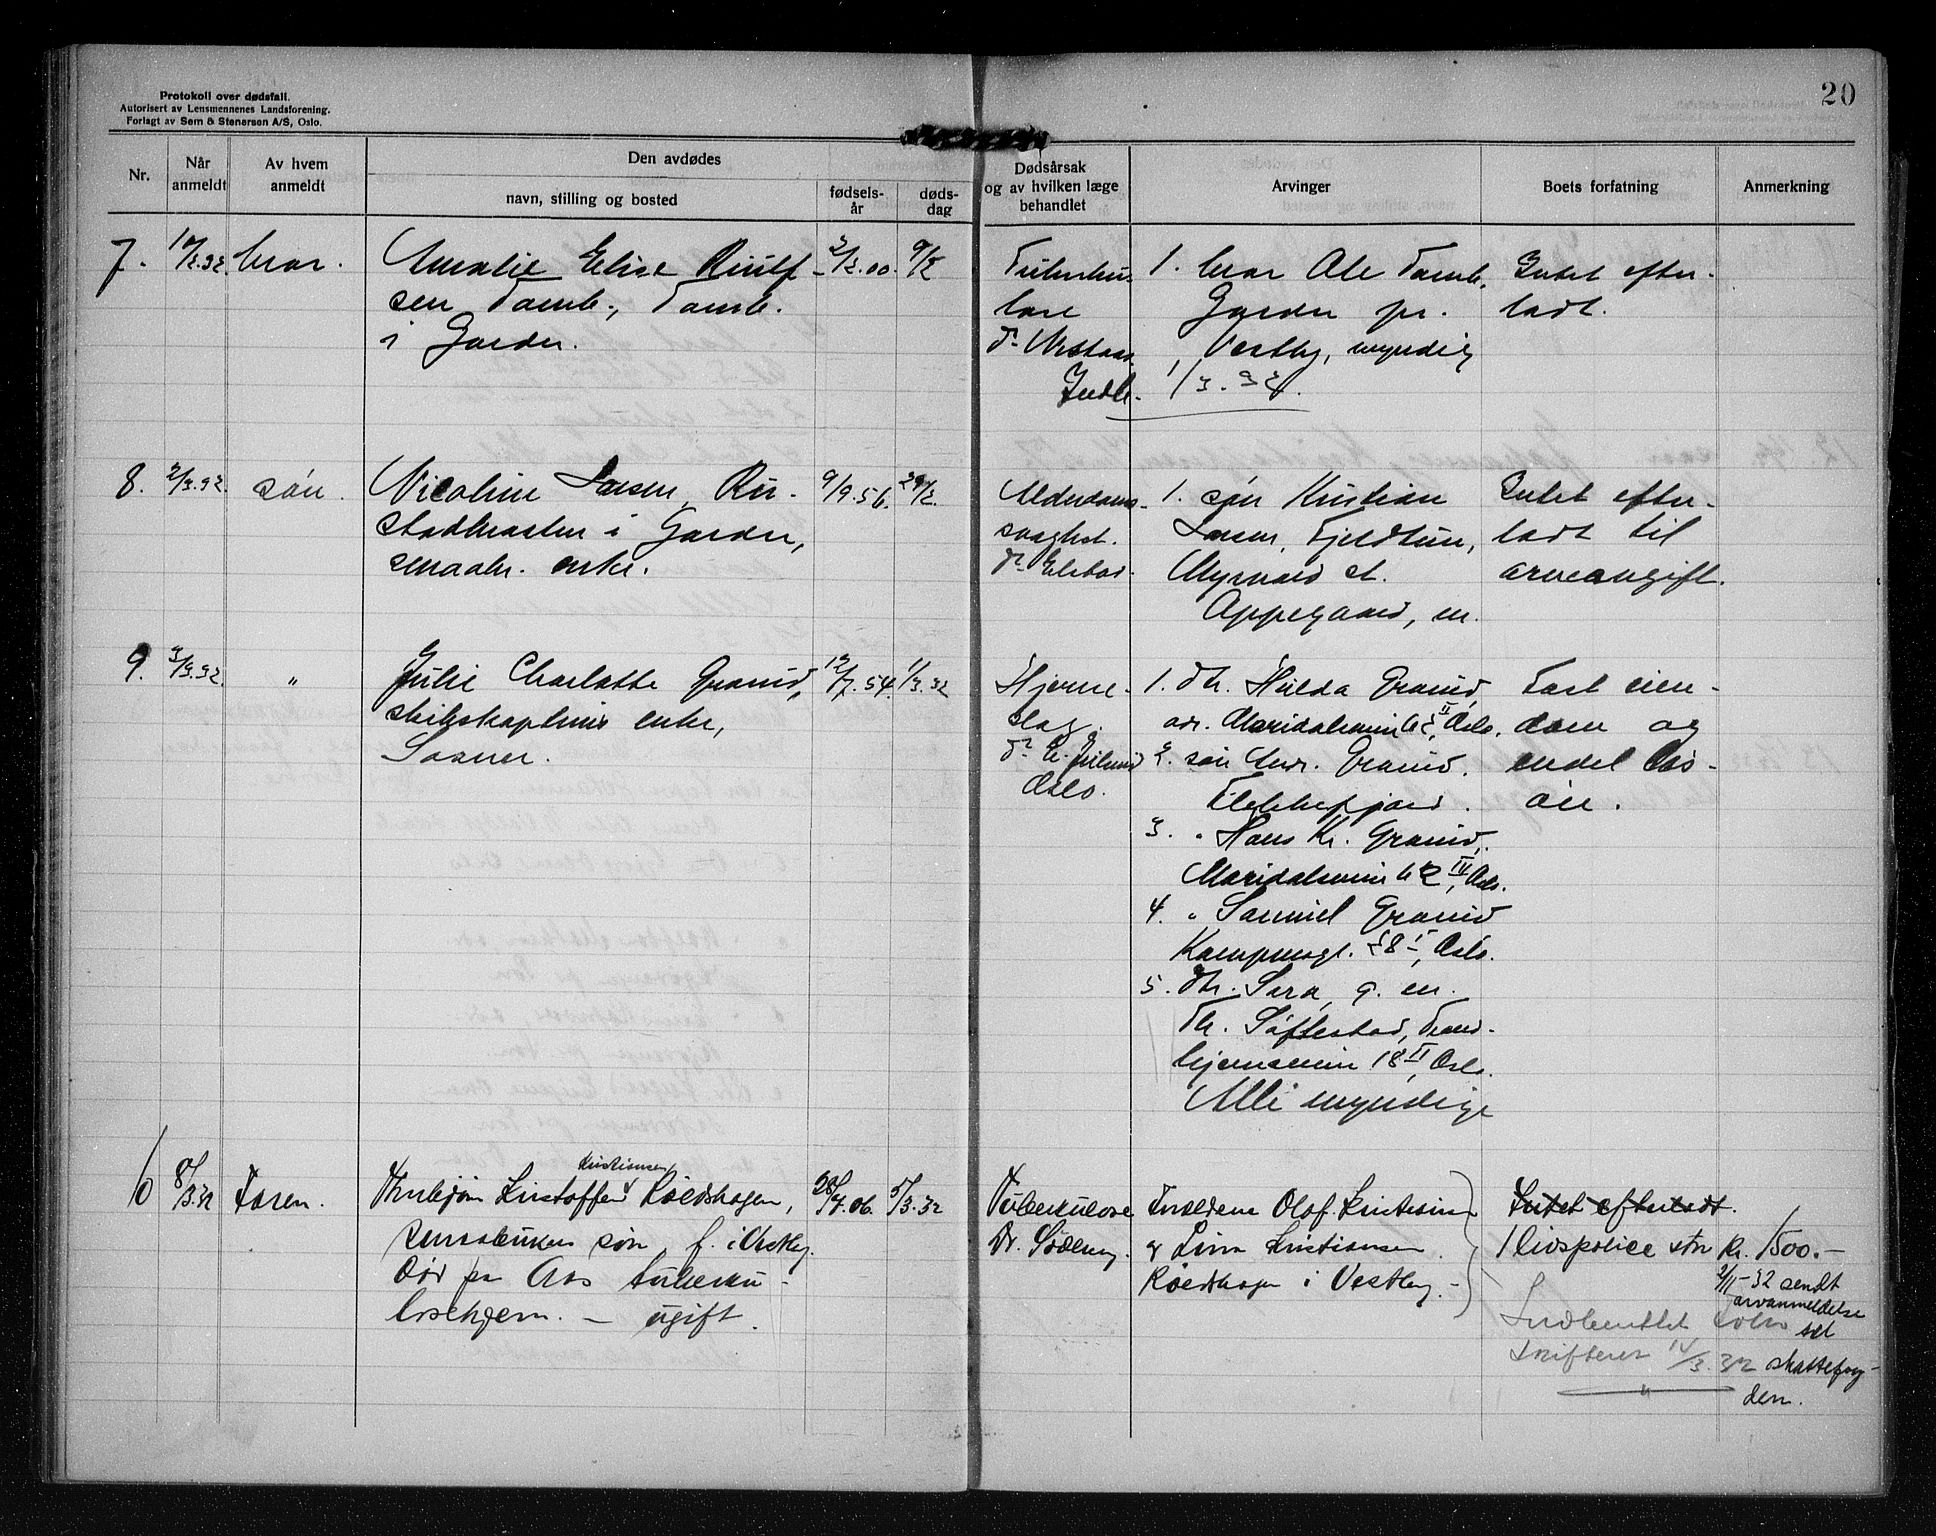 Protokoll over dødsfall.
Autorisert av Lensmennenes Landsforening.
Forlagt av Sem & Stenersen A/S, Oslo.
20
Nr.
Når anmeldt
Av hvem anmeldt
Den avdødes
navn, stilling og bosted
fødselsår
dødsdag
Dødsårsak og av hvilken læge behandlet
Arvinger
Boets forfatning
Anmerkning
7.
bror.
Amalie Elise
sen Tomb., Tomb.
i Garder.
2/2.00.
9/2
Tuberku-
lose
Indb.
1. bror Ole Tomb.
Garder pr.
Vestby, myndig
1/3.32.
Intet efter-
ladt.
8.
2/3.32.
søn.
Nicoline Larsen, Ru-
stadbraaten i Garder,
smaabr. enke.
9/9.56.
29/2.
Alderdoms-
svaghet.
1. søn Kristian
Larsen, Fjeldtun,
Myrvold st.
Oppegaard, m.
Intet efter-
ladt til
arveavgift.
9.
3/3.32.
"
Julie Charlotte Granid,
skibskapteins enke,
Sogner.
12/7.54.
1/3.32
Hjerne-
slag
Oslo.
1. dtr. Hulda Granid,
adr. Maridalsveien 62 II, Oslo.
2. søn Andr. Granid.
Flekkefjord.
3. " Hans Kr. Granid,
Maridalsveien 62 IV, Oslo.
4. " Samuel Granid
Kampensgt. 18 I, Oslo.
5. dtr. Sara, g. m.
Th. Søftestad, Trond-
hjemsveien 18 II, Oslo.
Alle myndige
Fast eien-
dom og
endel løs-
øre.
10
8/3.32
Faren.
Kristiansen
Thorbjørn Kristoffer Røedshagen,
smaabruker søn f. i Vestby.
Død på Aas tuberku-
losehjem. — ugift.
28/7.06.
5/3.32
Tuberkulose
Dr. Sødling.
Forældrene Olaf Kristiansen
og Lina Kristiansen
Røedshagen i Vestby.
Intet efterladt.
1 livspolice stor Kr. 1500.-
2/11-32 sendt
arvanmeldelse
til
skattefog-
den.
Indberettet Follo
Skifteret 14/3.32